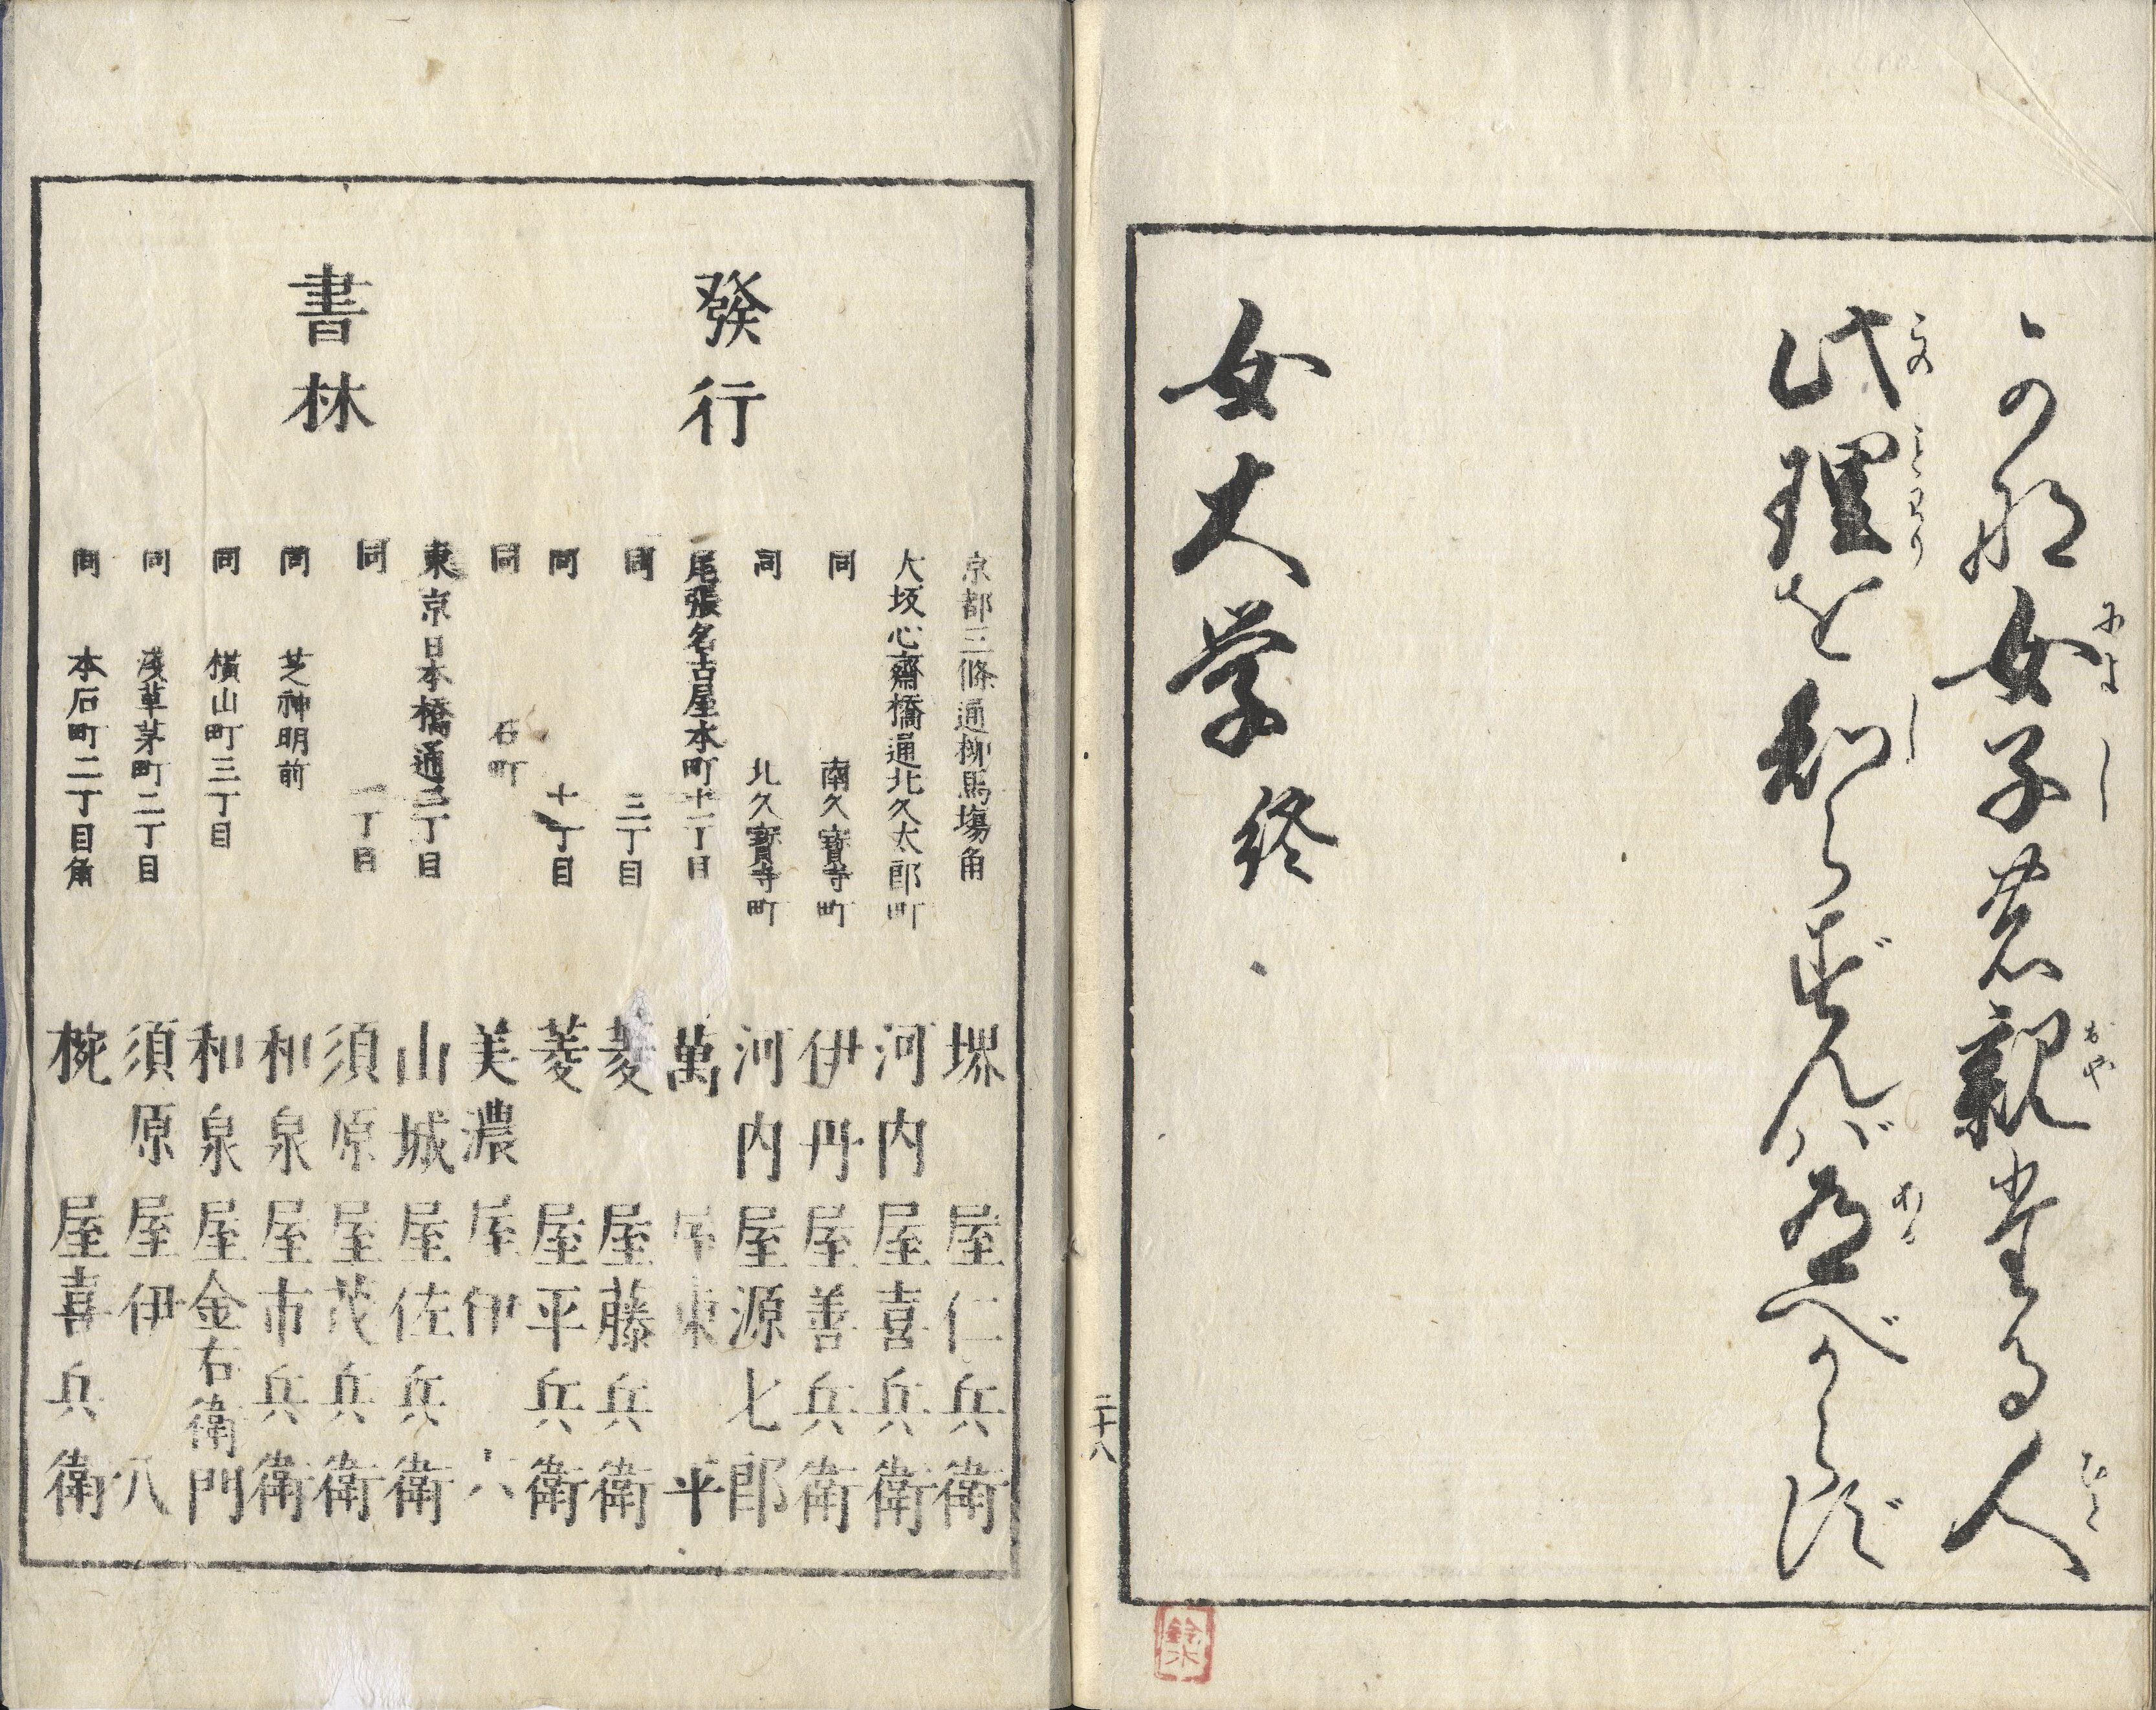 かな女子の親たる人
此理を知らずんば有べからず
女大学終
二十八
鈴木
發行
書林
京都三條通柳馬塲角 堺屋仁兵衛
大坂心齋橋通北久太郎町 河内屋喜兵衛
同 南久寳寺町 伊丹屋善兵衛
同 北久寳寺町 河内屋源七郎
尾張名古屋本町十一丁目 萬屋東平
同 三丁目 菱屋藤兵衛
同 十丁目 菱屋平兵衛
同 石町 美濃屋伊六
東京日本橋通二丁目 山城屋佐兵衛
同 一丁目 須原屋茂兵衛
同 芝神明前 和泉屋市兵衛
同 横山町三丁目 和泉屋金右衛門
同 淺草茅町二丁目 須原屋伊八
同 本石町二丁目角 椀屋喜兵衛